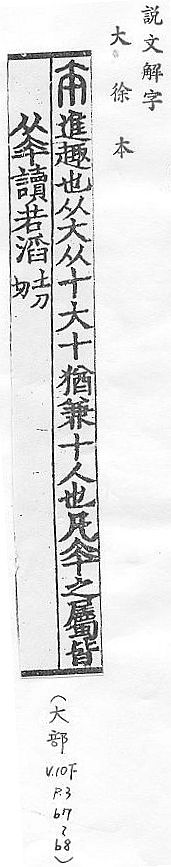 說文解字
大徐本
夲進趣也从大从十大十猶兼十人也凡夲之屬皆
从夲讀若滔土刀切
(大部 V.10下 P.3 b7~b8)